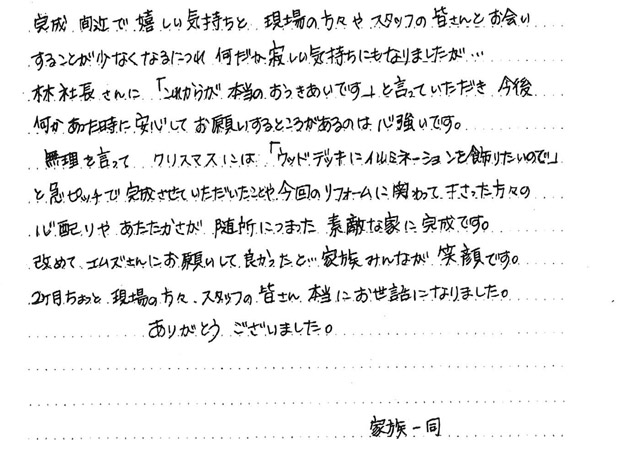 完成 間近で嬉しい気持ちと 現場の方々やスタッフの皆さんとお会い
することが少なくなるにつれ 何だか寂しい気持ちにもなりましたが…
林社長さんに「これからが本当のおつきあいです」と言っていただき 今後
何かあった時に安心してお願いするところがあるのは心強いです。
無理を言って クリスマスには「ウッドデッキにイルミネーションを飾りたいので」
と急ピッチで完成させていただいたことや今回のリフォームに関わって下さった方々の
心配りやあたたかさが 随所につまった 素敵な家に完成です。
改めて エムズさんにお願いして良かったと… 家族みんなが 笑顔です。
2ヶ月ちょっと 現場の方々、スタッフの皆さん 本当にお世話になりました。
ありがとう ございました。
家族一同